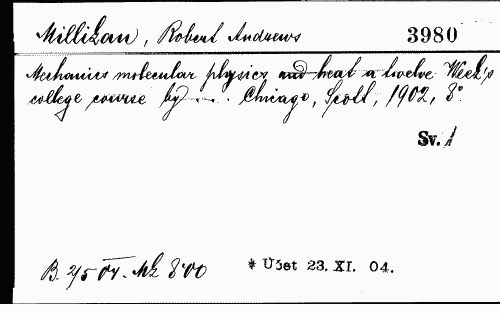 Millikan, Robert Andrews 3980
Mechanics molecular physics and heat a twelve Week's
college course by .... Chicago, Scott, 1902, 8°.
Sv. 1
B. 2/5 04. Mk 8'00 * Učet 23. XI. 04.